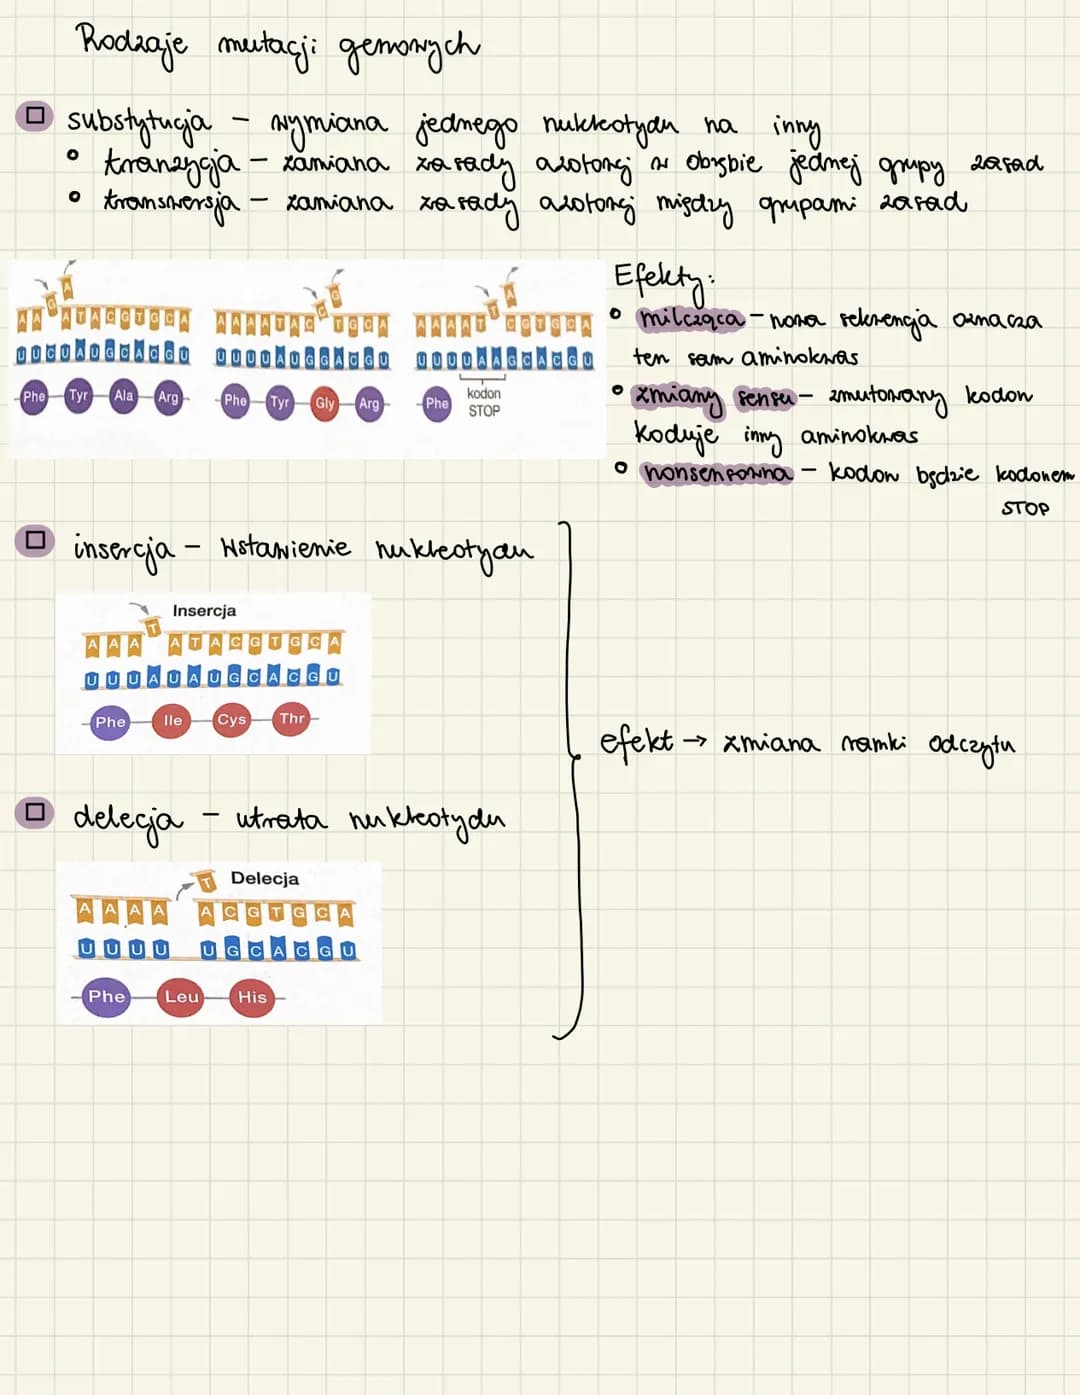 Rodzaje mutacji genowych
substytucja – wymiana jednego nukleotydu na inny
tranzycja – zamiana zasady azotowej w obrębie jednej grupy zasad
transwersja – zamiana zasady azotowej między grupami zasad
G A
A A A T A C G T G C A
U U C U A U G C A C G U
Phe Tyr Ala Arg
C G
A A A A T A C T G C A
U U U U A U G G A C G U
Phe Tyr Gly Arg
T A
A A A A T C G T G C A
U U U U A A G C A C G U
Phe kodon
STOP
Efekty:
milcząca – nowa sekwencja oznacza
ten sam aminokwas
zmiany sensu – zmutowany kodon
koduje inny aminokwas
nonsensowna – kodon będzie kodonem
STOP
insercja – wstawienie nukleotydu
Insercja
T
A A A A T A C G T G C A
U U U A U A U G C A C G U
Phe Ile Cys Thr
efekt → zmiana ramki odczytu
delecja – utrata nukleotydu
T Delecja
A A A A A C G T G C A
U U U U U G C A C G U
Phe Leu His